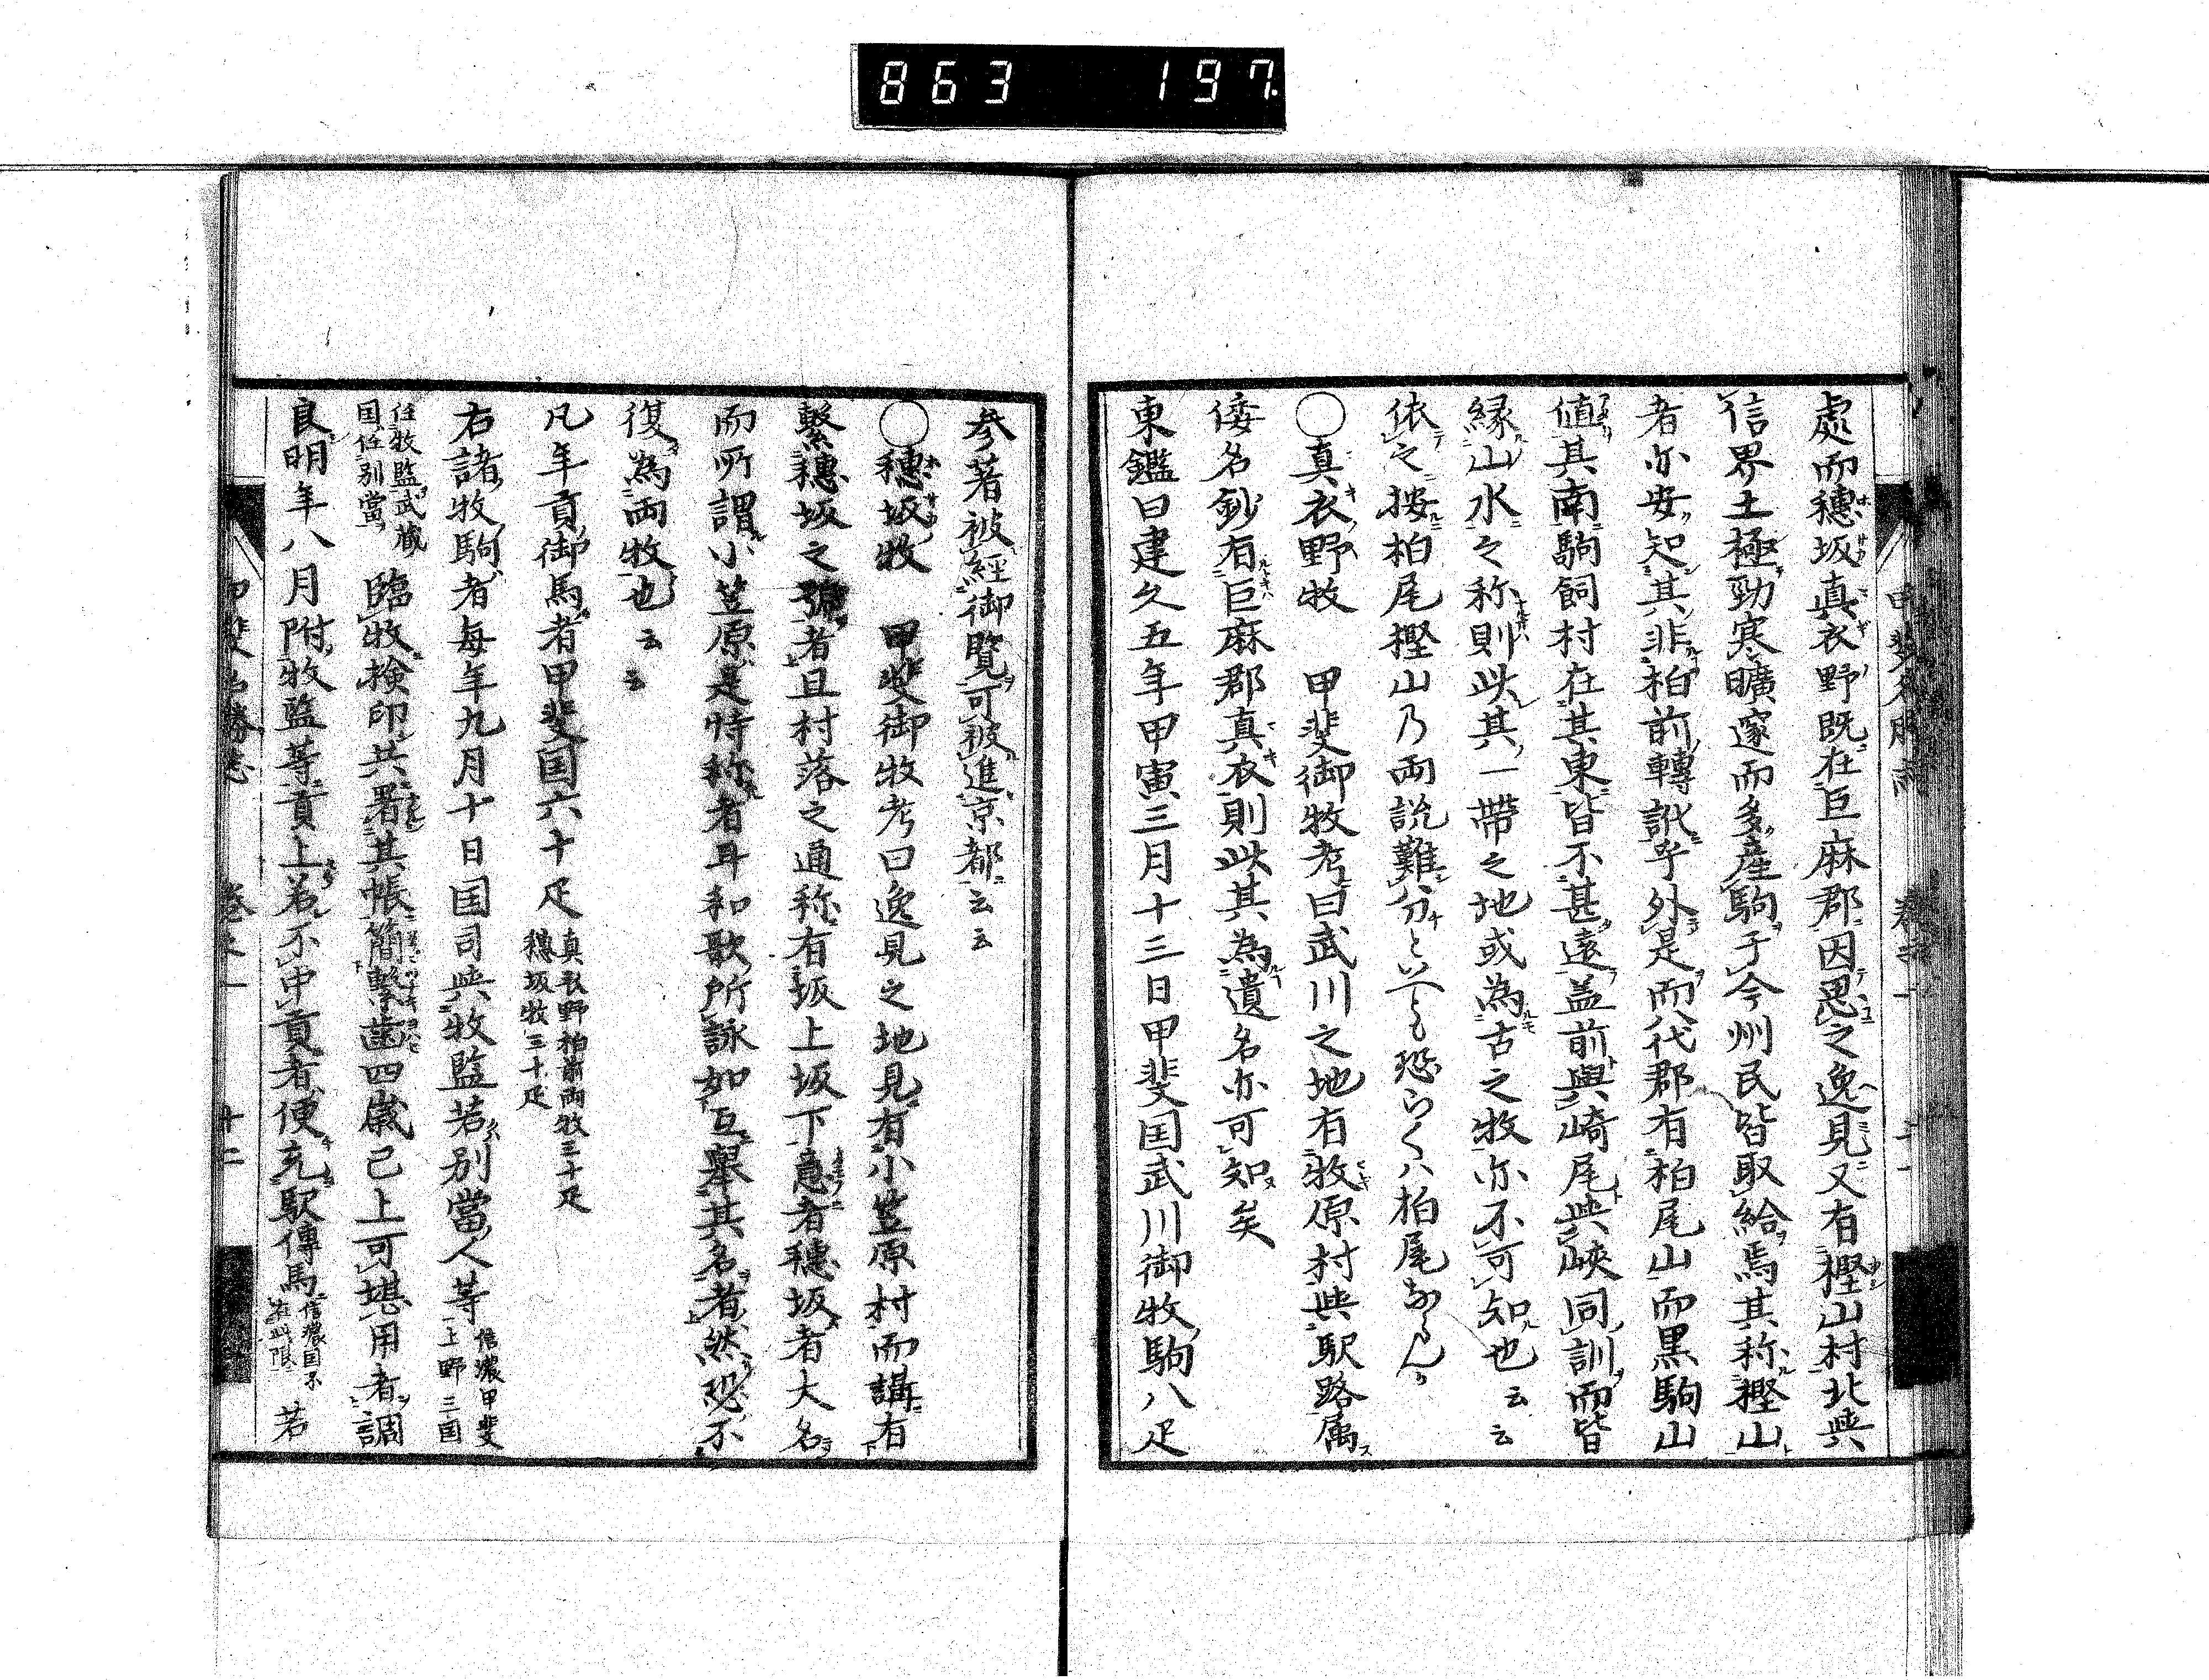 863 197
處而穗坂真衣野既在巨麻郡因思之逸見又有樫山村北與
信界土極勁寒曠邃而多産駒于今州民皆取給焉其称樫山
者亦安知其非柏前轉訛乎外是而八代郡有柏尾山而黒駒山
値其南駒飼村在其東皆不甚遠盖前與崎尾與峽同訓而皆
縁山水之称則此其一帶之地或為古之牧亦不可知也云云
依之按柏尾樫山乃両説難分といへとも恐らくハ柏尾ならん
○真衣野牧 甲斐御牧考曰武川之地有牧原村與駅路属
倭名鈔有巨麻郡真衣則此其為遺名亦可知矣
東鑑曰建久五年甲寅三月十三日甲斐国武川御牧駒八疋
参著被經御覽可被進京都云云
○穗坂牧 甲斐御牧考曰逸見之地見有小笠原村而講有
繋穗坂之號者且村落之通称有坂上坂下意者穗坂者大名
而所謂小笠原是特称者耳和歌所詠如互舉其名者然恐不
復為両牧也云云
凡年貢御馬者甲斐国六十疋 真衣野柏前両牧三十疋 穗坂牧三十疋
右諸牧駒者毎年九月十日国司與牧監若別當人等 信濃甲斐上野三国
任牧監武蔵国任別當 臨牧検印共署其帳簡繋歯四歳已上可堪用者調
良明年八月附牧監等貢上若不中貢者便充駅傳馬 信濃国不在此限 若
甲斐名勝志 卷之一 十二